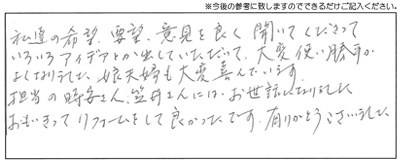 ※今後の参考に致しますのでできるだけご記入ください。
私達の希望、要望、意見を良く聞いてくださって
いろいろアイデアとか出していただいて、大変使い勝手が
よくなりました。娘夫婦も大変喜んでいます。
担当の時安さん、笠井さんには、お世話になりました
おもいきってリフォームをして良かったです。有りがとうございました